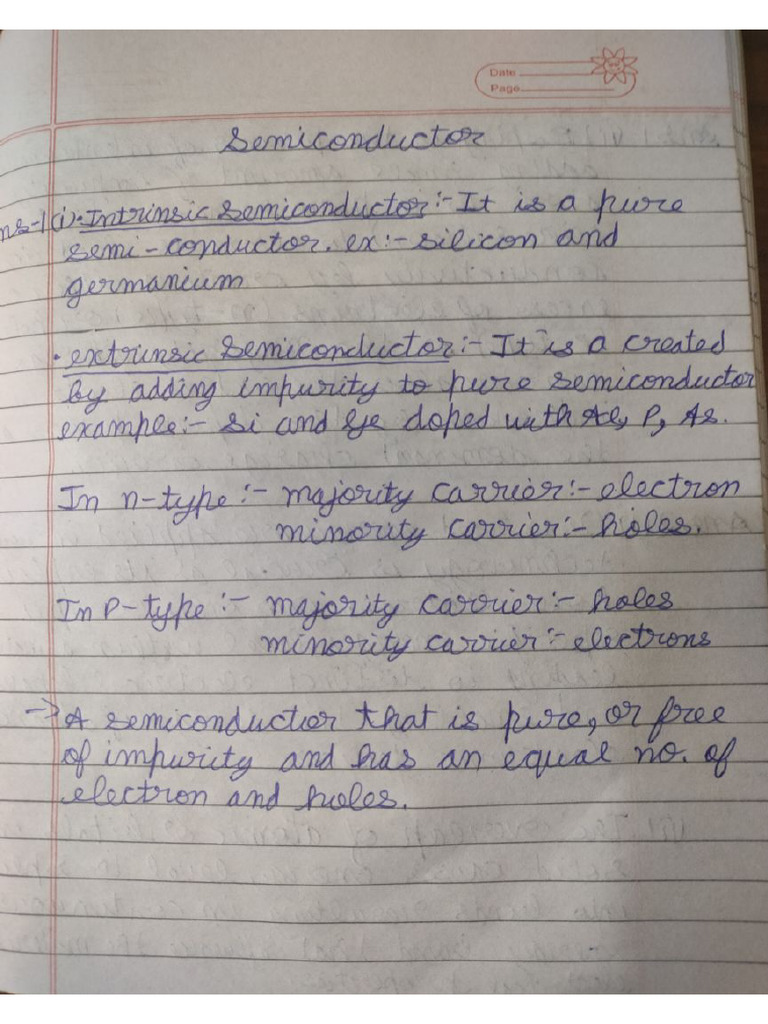 Date
Page
Semiconductor
ns-1(i). Intrinsic semiconductor:- It is a pure
semi-conductor. ex:- silicon and
germanium
. extrinsic semiconductor:- It is a created
by adding impurity to pure semiconductor
example:- si and Ge doped with Al, P, As.
In n-type:- majority carrier:- electron
minority carrier:- holes.
In P-type:- majority carrier:- holes
minority carrier:- electrons
→ A semiconductor that is pure, or free
of impurity and has an equal no. of
electron and holes.